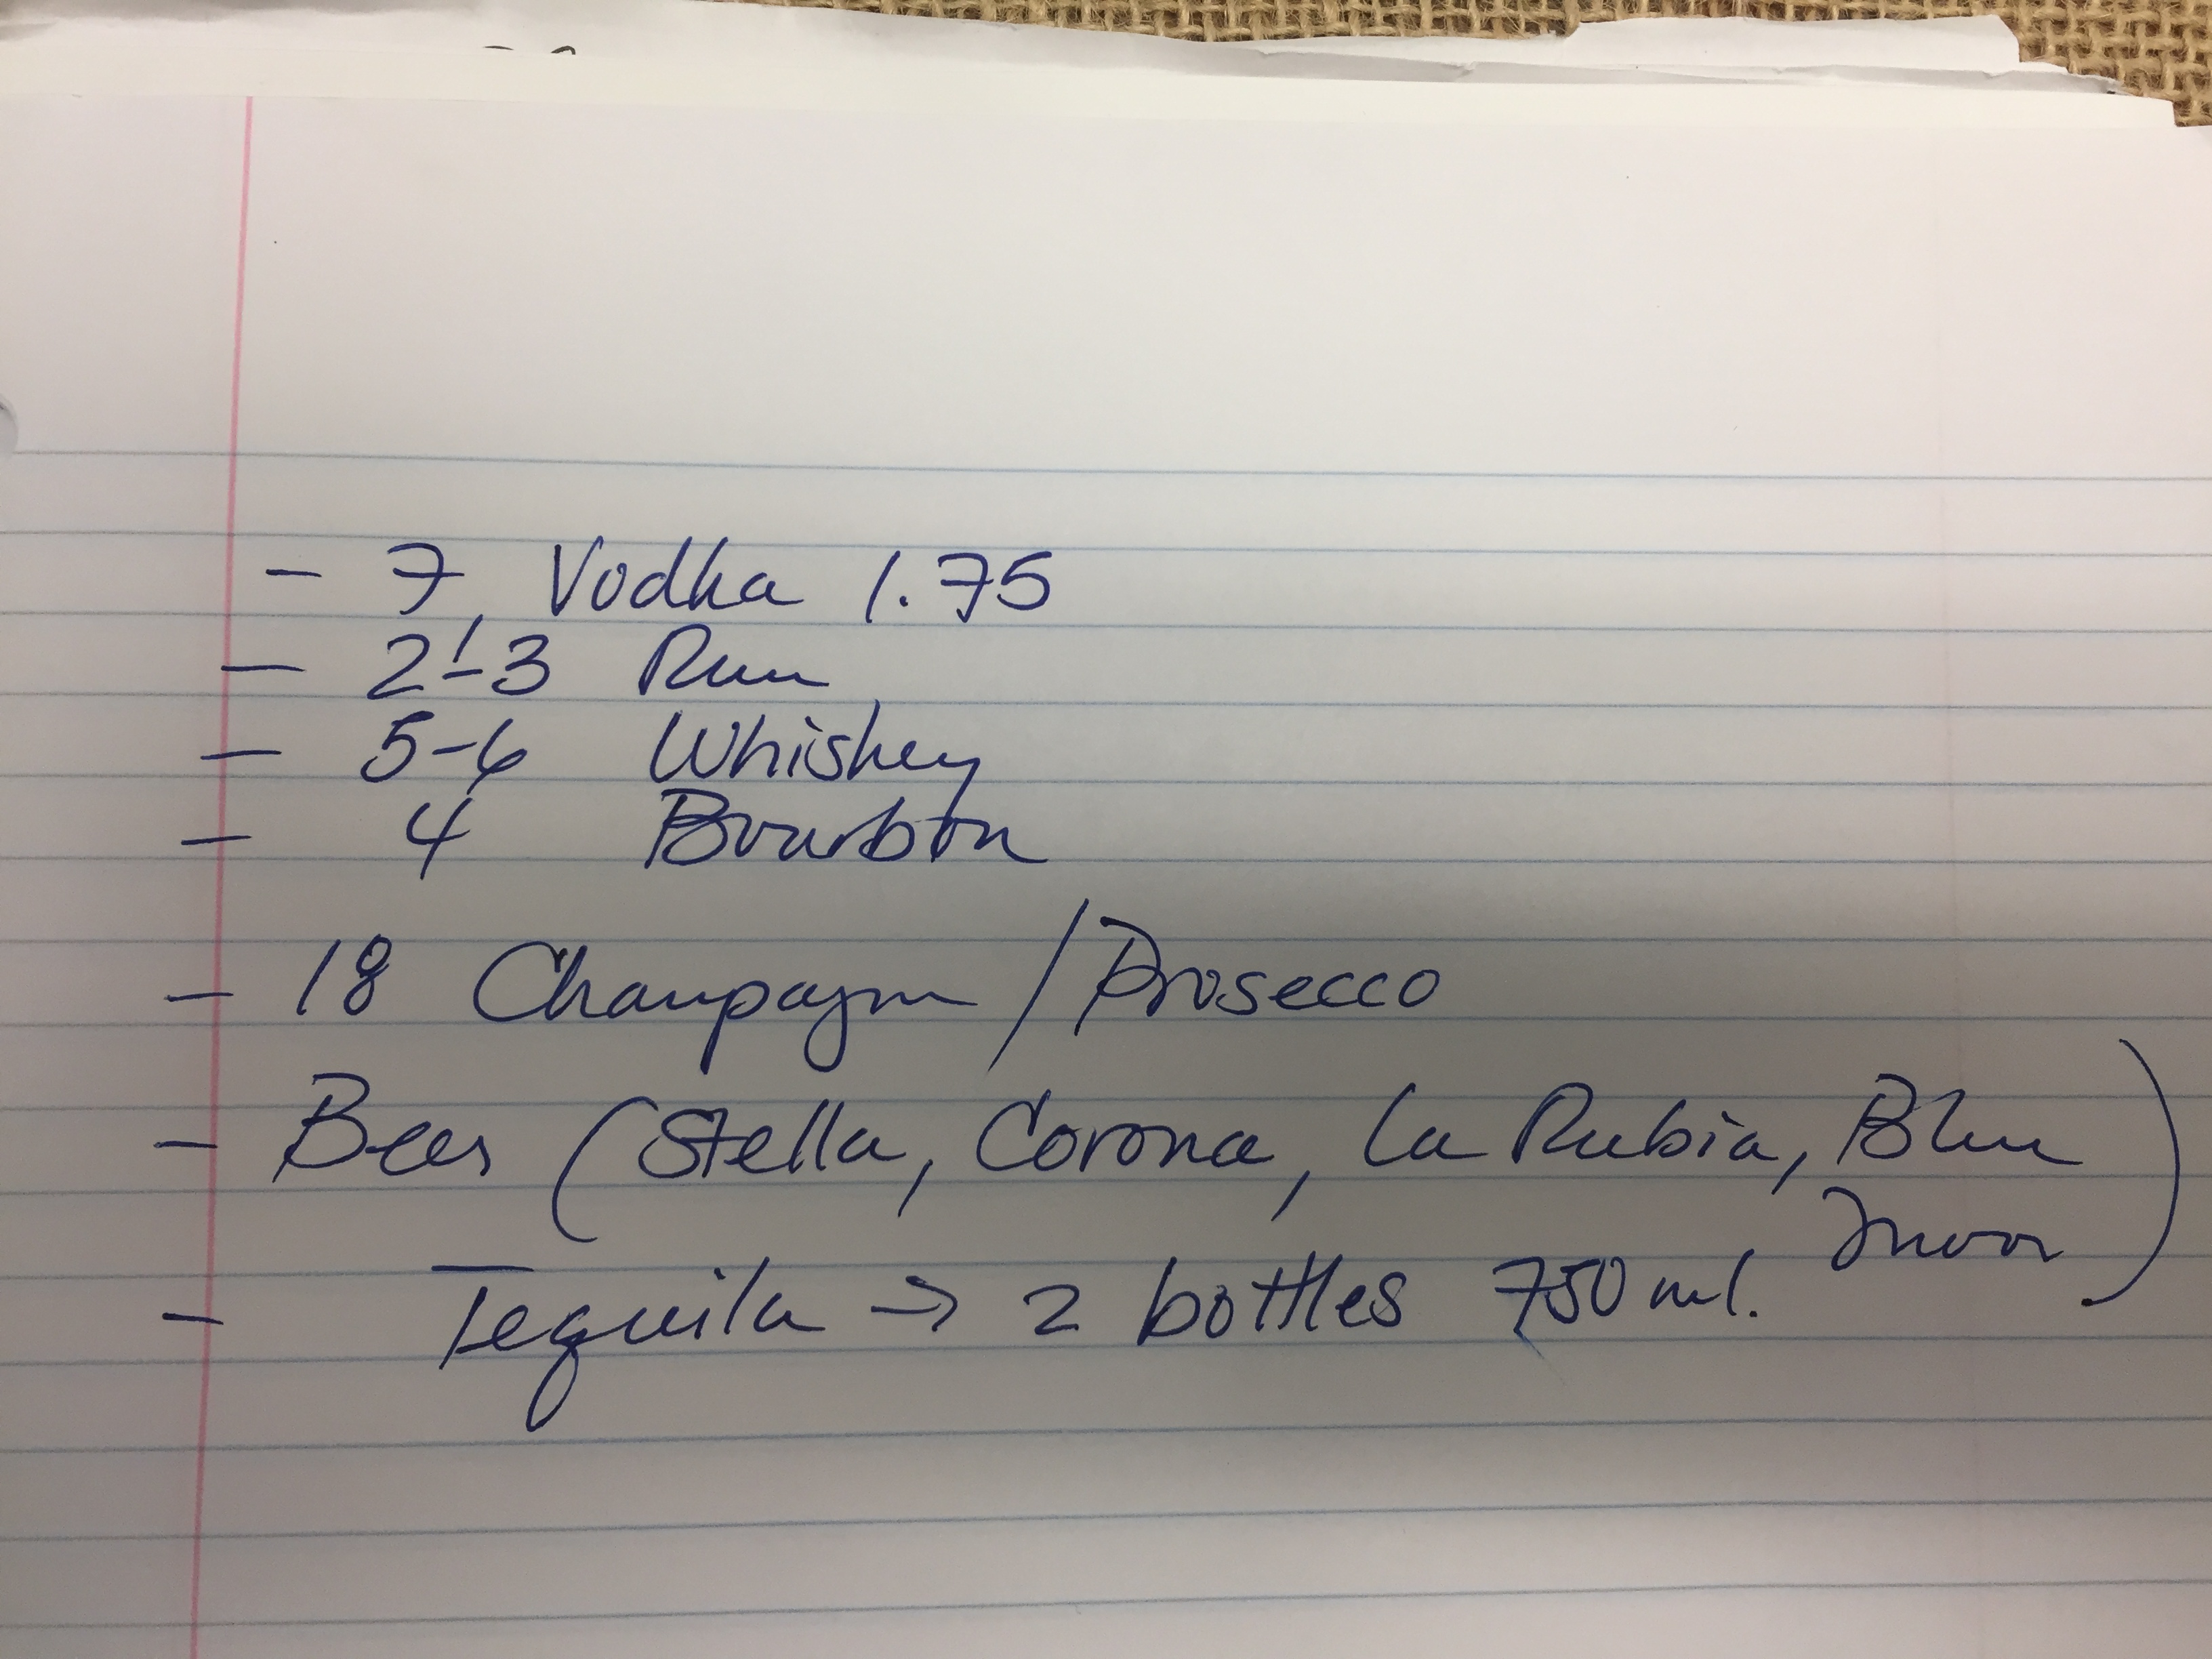 - 7 Vodka 1.75
- 2-3 Rum
- 5-6 Whiskey
- 4 Bourbon
- 18 Champagne / Prosecco
- Beer (Stella, Corona, La Rubia, Blue
Moon)
- Tequila → 2 bottles 750 ml.